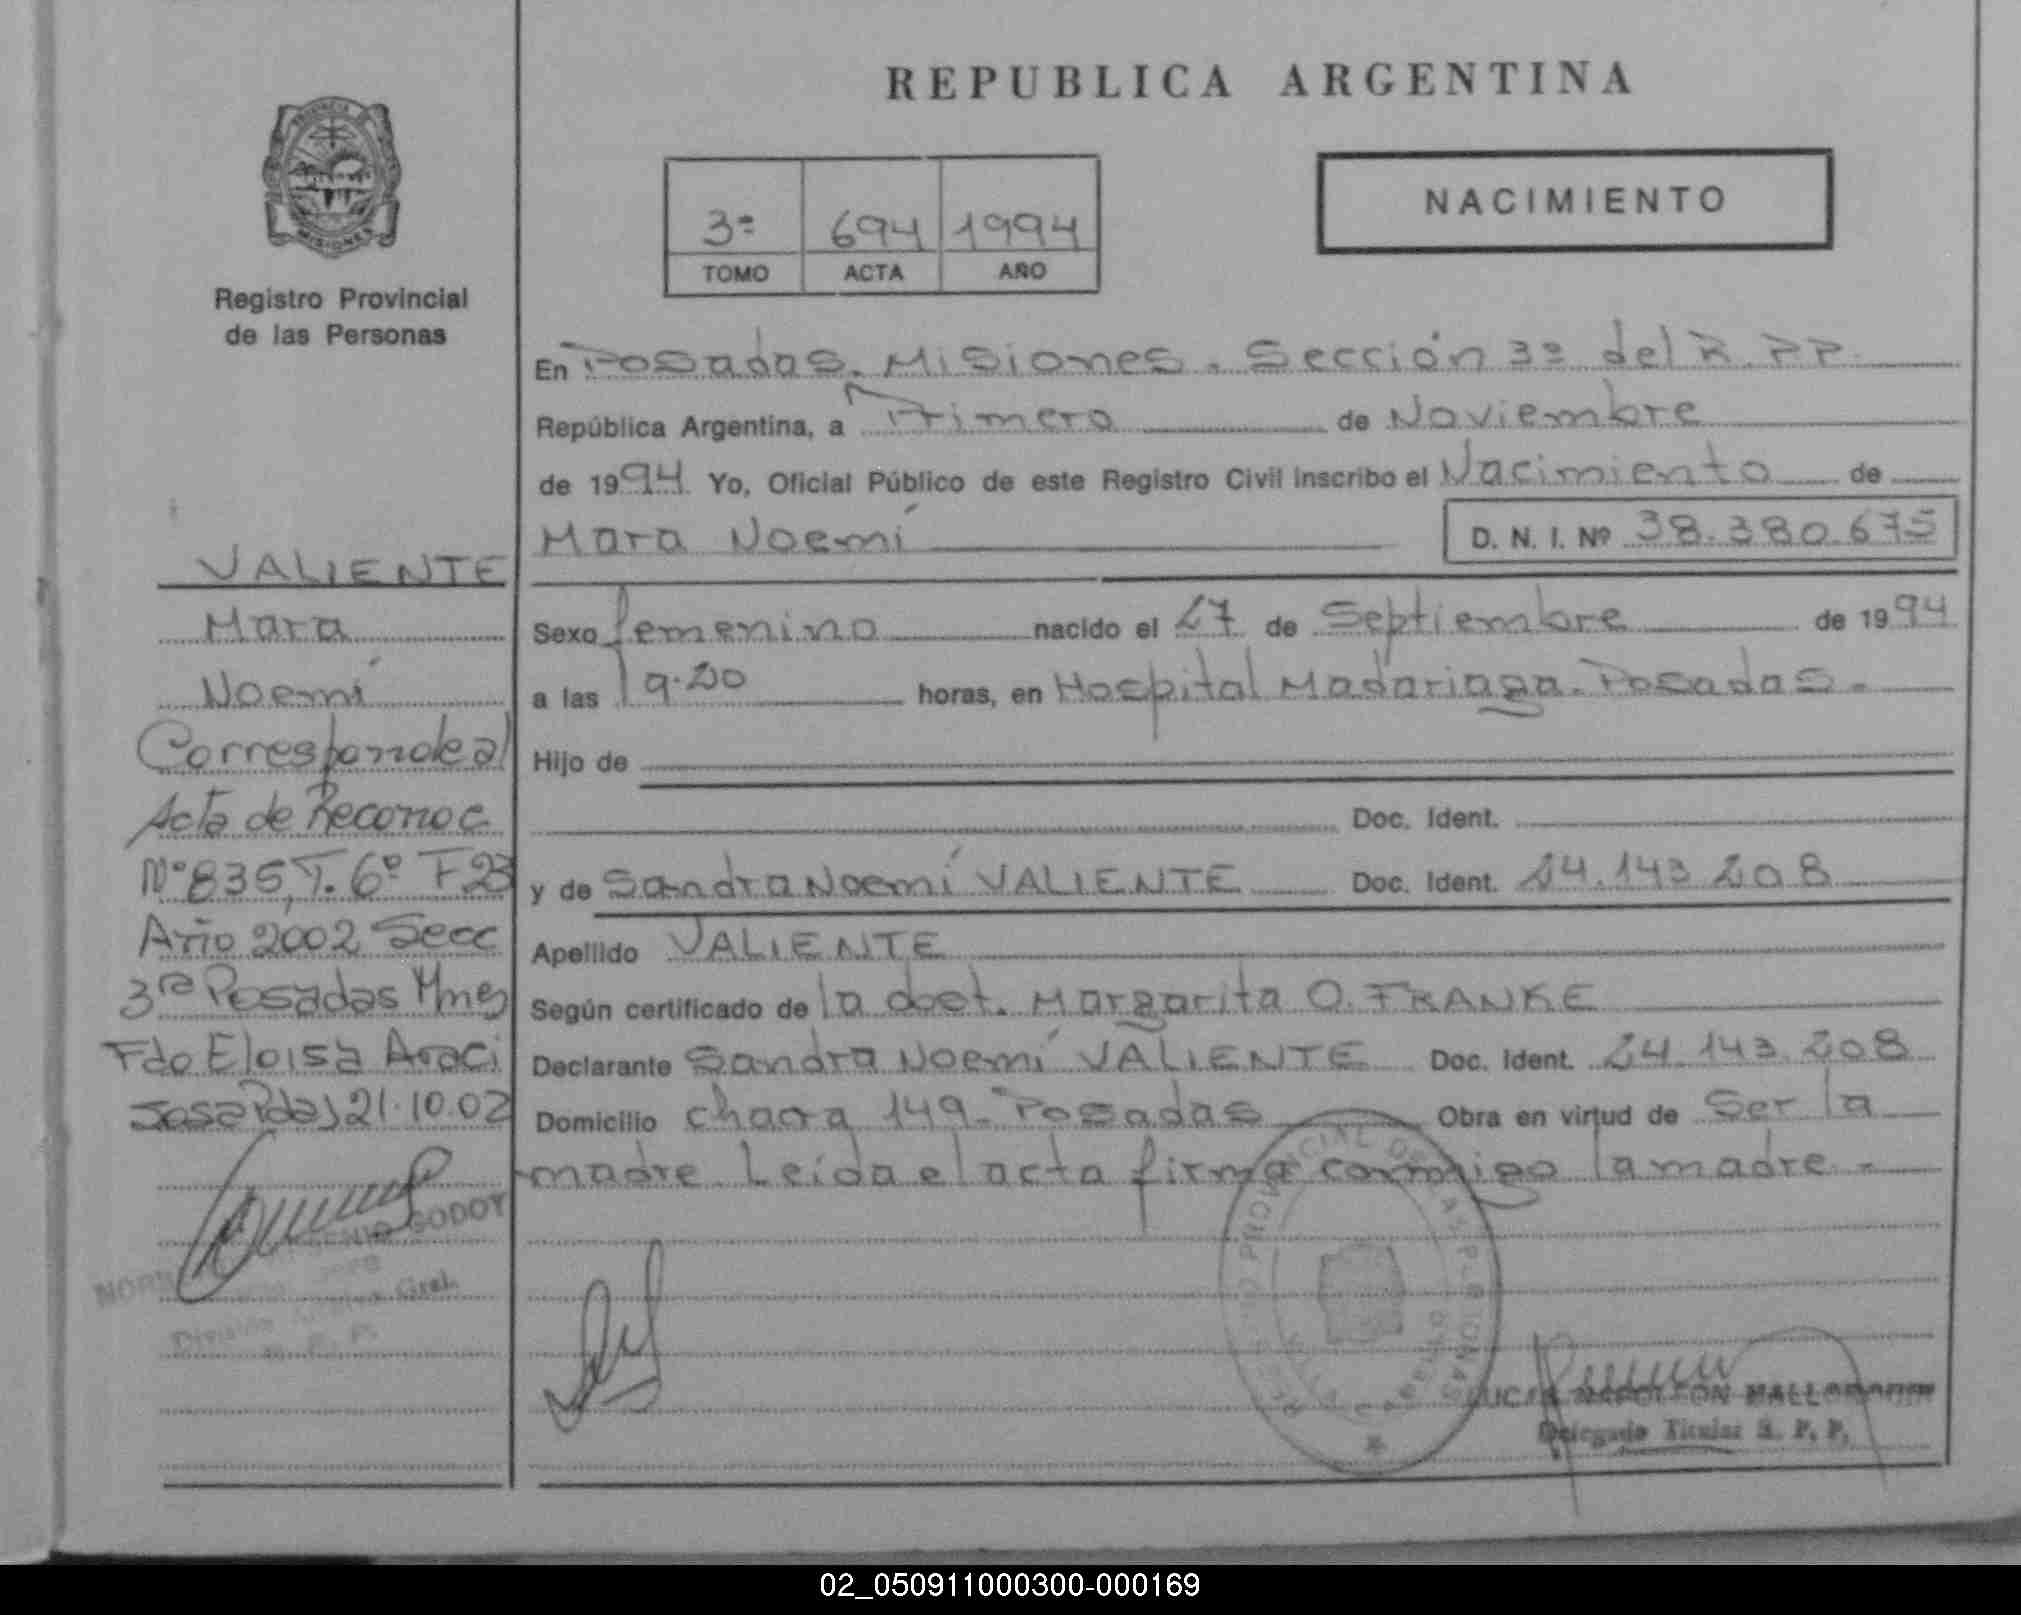 REPUBLICA ARGENTINA
PROVINCIA
MISIONES
Registro Provincial
de las Personas
3ª 694 1994
TOMO ACTA AÑO
NACIMIENTO
En Posadas. Misiones. Sección 3ª del R.PP.
República Argentina, a Primero de Noviembre
de 1994 Yo, Oficial Público de este Registro Civil inscribo el Nacimiento de
Mara Noemí D. N. I. Nº 38.380.675
Sexo femenino nacido el 27 de Septiembre de 1994
a las 19.20 horas, en Hospital Madariaga. Posadas.
Hijo de
Doc. Ident.
y de Sandra Noemí VALIENTE Doc. Ident. 24.143.208
Apellido VALIENTE
Según certificado de la doct. Margarita O. FRANKE
Declarante Sandra Noemí VALIENTE Doc. Ident. 24.143.208
Domicilio chacra 149- Posadas Obra en virtud de Ser la
madre. Leída el acta firma conmigo la madre.-
Delegado Titular R. P. P.
VALIENTE
Mara
Noemí
Corresponde al
Acta de Reconoc
Nº 835, T. 6º F.23
Año 2002 Secc
3ra Posadas Mnes
Fdo Eloisa Araci
Sosa Pdas 21.10.02
GODOY
División Gral.
R. P. P.
02_050911000300-000169